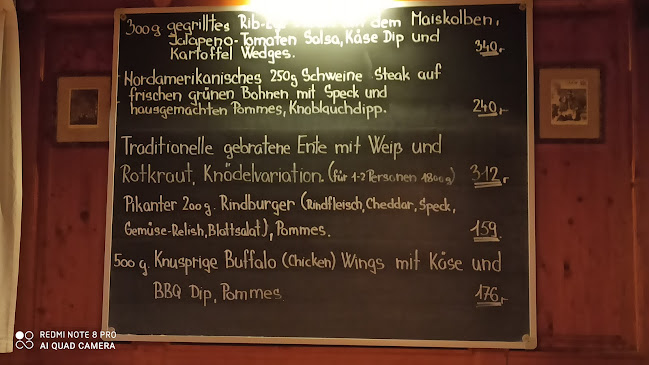 300g gegrilltes Rib-Eye dem Maiskolben,
Jalapeno-Tomaten Salsa, Käse Dip und
Kartoffel Wedges. 340,-
Nordamerikanisches 250g Schweine Steak auf
frischen grünen Bohnen mit Speck und
hausgemachten Pommes, Knoblauchdipp. 240,-
Traditionelle gebratene Ente mit Weiß und
Rotkraut, Knödelvariation. (für 1-2 Personen 1800g) 312,-
Pikanter 200g. Rindburger (Rindfleisch, Cheddar, Speck,
Gemüse-Relish, Blattsalat), Pommes. 159,-
500g. Knusprige Buffalo (Chicken) Wings mit Käse und
BBQ Dip, Pommes 176,-
REDMI NOTE 8 PRO
AI QUAD CAMERA